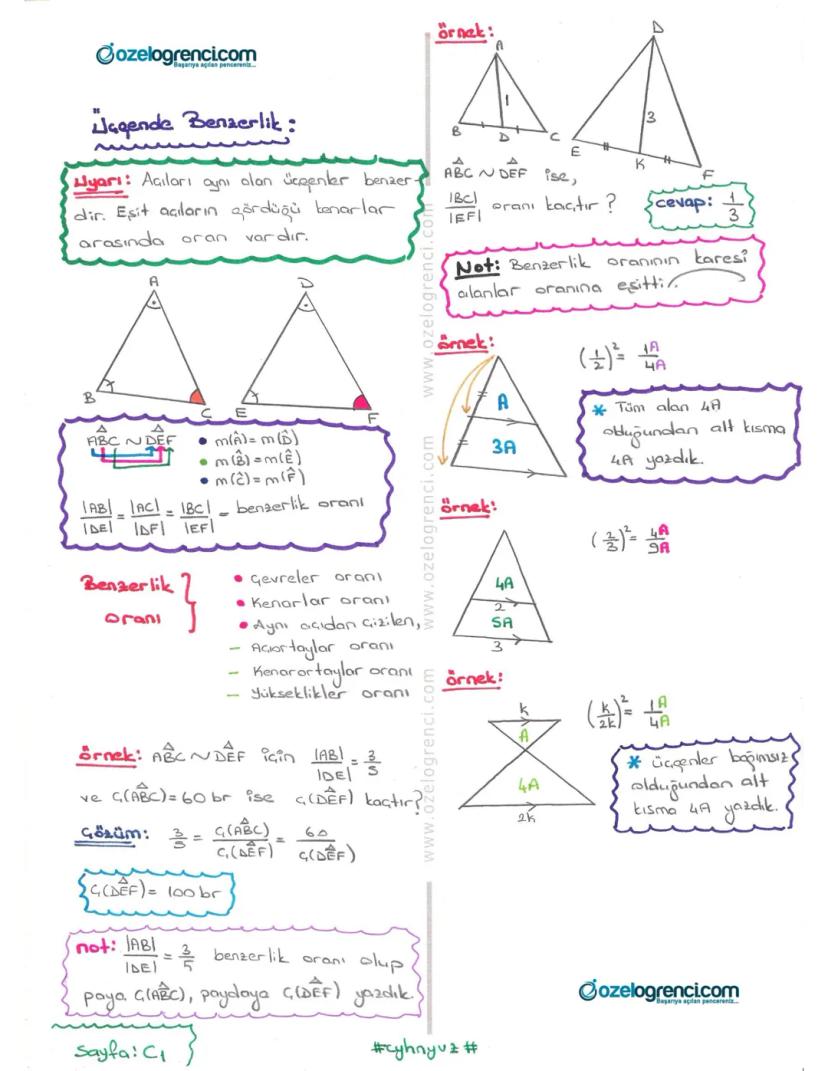 ozelogrenci.com
Başarıya açılan pencereniz...
Üçgende Benzerlik:
Uyarı: Açıları aynı olan üçgenler benzer-
dir. Eşit açıların gördüğü kenarlar
arasında oran vardır.
A
D
B
C
E
F
ABC ~ DEF
• m(Â) = m(D̂)
• m(B̂) = m(Ê)
• m(Ĉ) = m(F̂)
|AB|/|DE| = |AC|/|DF| = |BC|/|EF| = benzerlik oranı
Benzerlik oranı
• Çevreler oranı
• Kenarlar oranı
• Aynı açıdan çizilen,
- Açıortaylar oranı
- Kenarortaylar oranı
- Yükseklikler oranı
örnek: ABC ~ DEF için |AB|/|DE| = 3/5
ve Ç(ABC) = 60 br ise Ç(DEF) kaçtır?
Çözüm: 3/5 = Ç(ABC)/Ç(DEF) = 60/Ç(DEF)
Ç(DEF) = 100 br
not: |AB|/|DE| = 3/5 benzerlik oranı olup
paya Ç(ABC), paydaya Ç(DEF) yazdık.
Sayfa: Ç1
#cyhnyvz#
örnek:
A
1
B
D
C
D
3
E
K
F
ABC ~ DEF ise,
|BC|/|EF| oranı kaçtır?
cevap: 1/3
Not: Benzerlik oranının karesi
alanlar oranına eşittir.
örnek:
A
3A
(1/2)² = 1A/4A
* Tüm alan 4A
olduğundan alt kısma
4A yazdık.
örnek:
4A
2
5A
3
(2/3)² = 4A/9A
örnek:
k
A
4A
2k
(k/2k)² = 1A/4A
* üçgenler bağımsız
olduğundan alt
kısma 4A yazdık.
www.ozelogrenci.com
www.ozelogrenci.com
www.ozelogrenci.com
ozelogrenci.com
Başarıya açılan pencereniz...